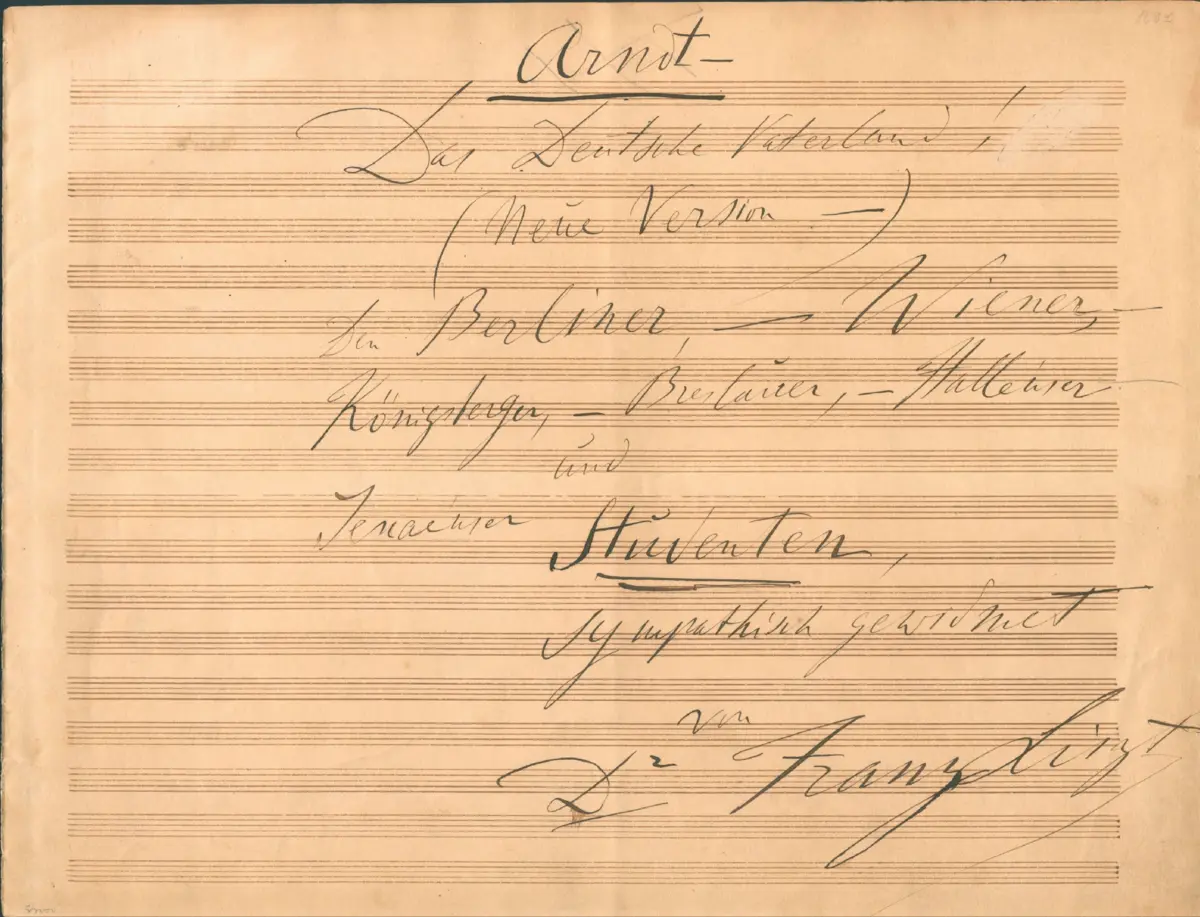 Arndt—
Das Deutsche Vaterland!
(Neue Version —)
Den Berliner, — Wiener, —
Königsberger, — Breslauer, — Hallenser
und
Jenaenser Studenten,
sympathisch gewidmet
von
Dr Franz Liszt